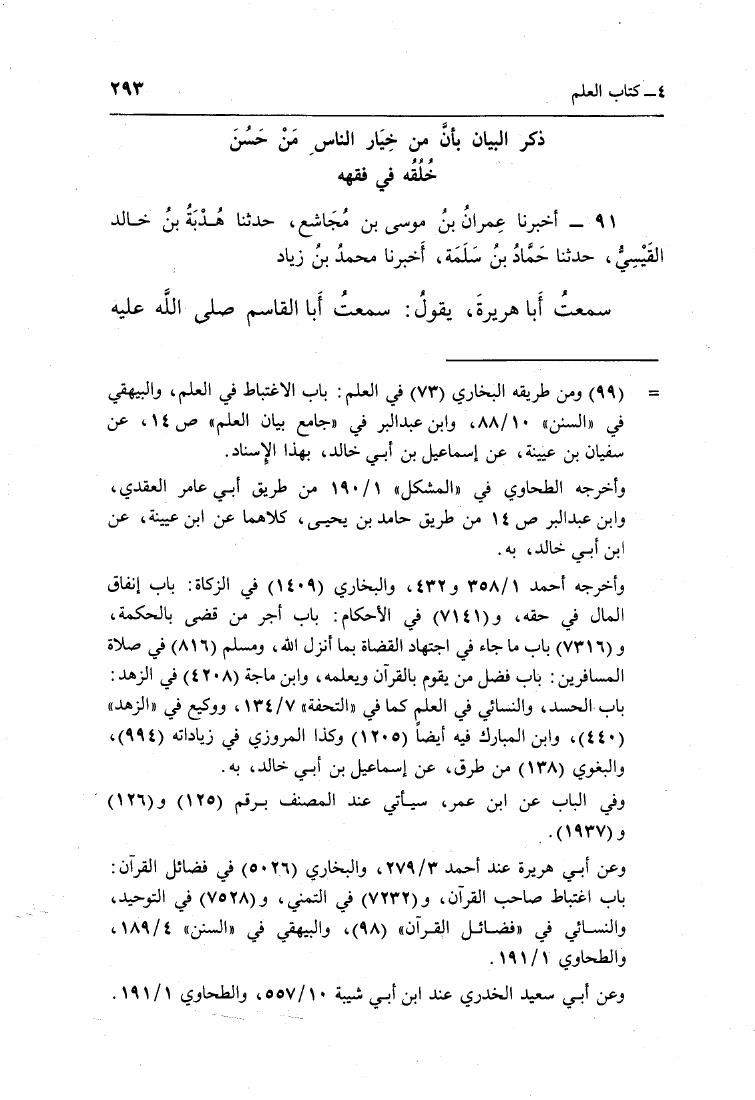 ٤ ــ كتاب العلم ٢٩٣
ذكر البيان بأنَّ من خِيَار الناسِ مَنْ حَسُنَ
خُلُقُه في فقهه
٩١ ــ أخبرنا عِمرانُ بنُ موسى بن مُجَاشع، حدثنا هُـدْبَةُ بنُ خـالد
القَيْسِيُّ، حدثنا حَمَّادُ بنُ سَلَمَة، أَخبرنا محمدُ بنُ زياد
سمعتُ أَبا هريرةَ، يقولُ: سمعتُ أَبا القاسم صلى اللَّه عليه
= (٩٩) ومن طريقه البخاري (٧٣) في العلم: باب الاغتباط في العلم، والبيهقي
في «السنن» ٨٨/١٠، وابن عبدالبر في «جامع بيان العلم» ص ١٤، عن
سفيان بن عيينة، عن إسماعيل بن أبـي خالد، بهذا الإسناد.
وأخرجه الطحاوي في «المشكل» ١٩٠/١ من طريق أبـي عامر العقدي،
وابن عبدالبر ص ١٤ من طريق حامد بن يحيـى، كلاهما عن ابن عيينة، عن
ابن أبـي خالد، به.
وأخرجه أحمد ٣٥٨/١ و٤٣٢، والبخاري (١٤٠٩) في الزكاة: باب إنفاق
المال في حقه، و(٧١٤١) في الأحكام: باب أجر من قضى بالحكمة،
و(٧٣١٦) باب ما جاء في اجتهاد القضاة بما أنزل الله، ومسلم (٨١٦) في صلاة
المسافرين: باب فضل من يقوم بالقرآن ويعلمه، وابن ماجة (٤٢٠٨) في الزهد:
باب الحسد، والنسائي في العلم كما في «التحفة» ١٣٤/٧، ووكيع في «الزهد»
(٤٤٠)، وابن المبارك فيه أيضاً (١٢٠٥) وكذا المروزي في زياداته (٩٩٤)،
والبغوي (١٣٨) من طرق، عن إسماعيل بن أبـي خالد، به.
وفي الباب عن ابن عمر، سيـأتي عند المصنف بـرقم (١٢٥) و(١٢٦)
و(١٩٣٧).
وعن أبـي هريرة عند أحمد ٢٧٩/٣، والبخاري (٥٠٢٦) في فضائل القرآن:
باب اغتباط صاحب القرآن، و(٧٢٣٢) في التمني، و(٧٥٢٨) في التوحيد،
والنسـائي في «فضـائـل القـرآن» (٩٨)، والبيهقي في «السنن» ١٨٩/٤،
والطحاوي ١٩١/١.
وعن أبـي سعيد الخدري عند ابن أبـي شيبة ٥٥٧/١٠، والطحاوي ١٩١/١.